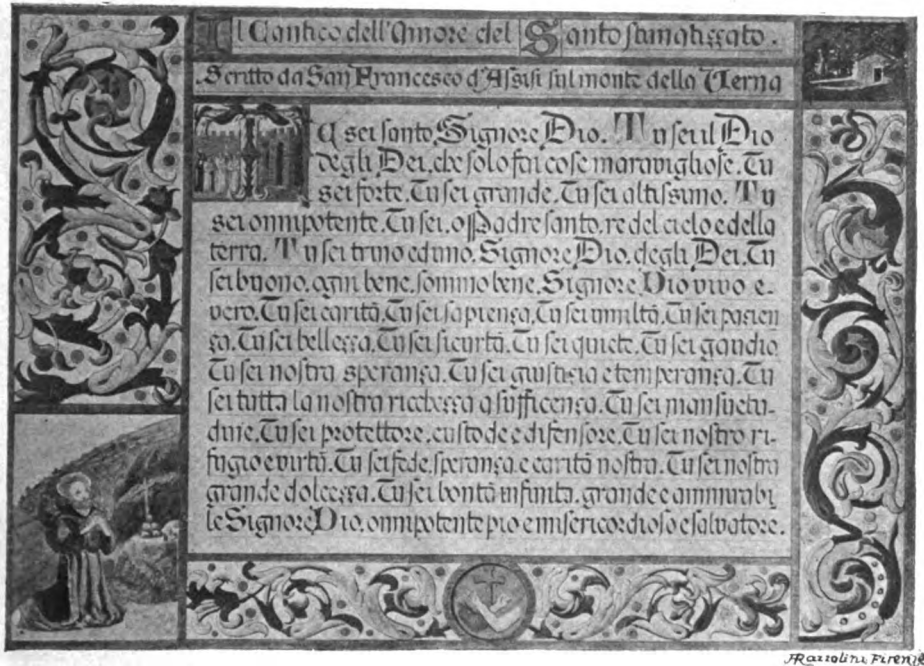 Il Cantico dell'Amore del Santo stimatizzato.
Scritto da San Francesco d'Assisi sul monte della Verna
Tu sei santo, Signore Dio. Tu sei il Dio
degli Dei, che solo fai cose maravigliose. Tu
sei forte. Tu sei grande. Tu sei altissimo. Tu
sei onnipotente. Tu sei, o Padre santo, re del cielo e della
terra. Tu sei trino ed uno. Signore Dio, degli Dei. Tu
sei buono, ogni bene, sommo bene, Signore Dio vivo e
vero. Tu sei carità, Tu sei sapienza, Tu sei umiltà, Tu sei pazien
za, Tu sei bellezza, Tu sei sicurtà, Tu sei quiete, Tu sei gaudio
Tu sei nostra speranza, Tu sei giustizia e temperanza. Tu
sei tutta la nostra ricchezza a sufficenza. Tu sei mansuetu-
dine, Tu sei protettore, custode e difensore, Tu sei nostro ri-
fugio e virtù. Tu sei fede, speranza, e carità nostra. Tu sei nostra
grande dolcezza. Tu sei bontà infinita, grande e ammirabi
le Signore Dio, onnipotente pio e misericordioso e salvatore.
Razzolini, Firenze